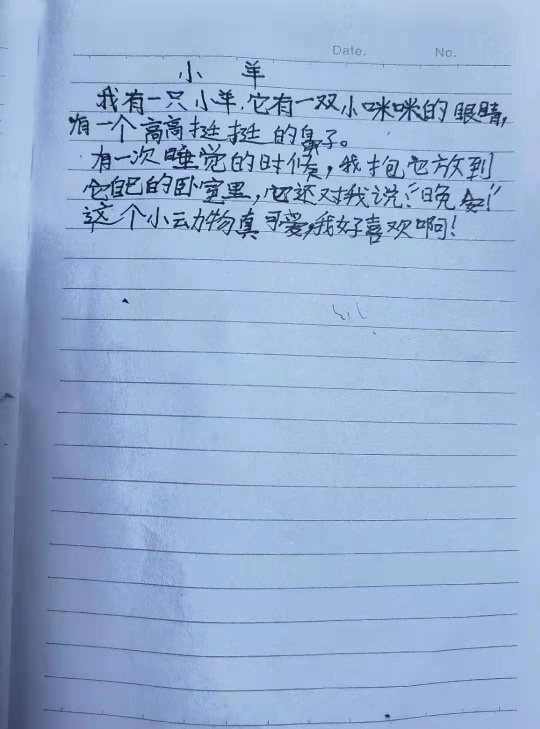 Date.    No.
小 羊
我有一只小羊,它有一双小咪咪的眼睛,
有一个高高挺挺的鼻子。
有一次睡觉的时候,我抱它放到
它自己的卧室里,它还对我说:“晚安!”
这个小动物真可爱,我好喜欢啊!